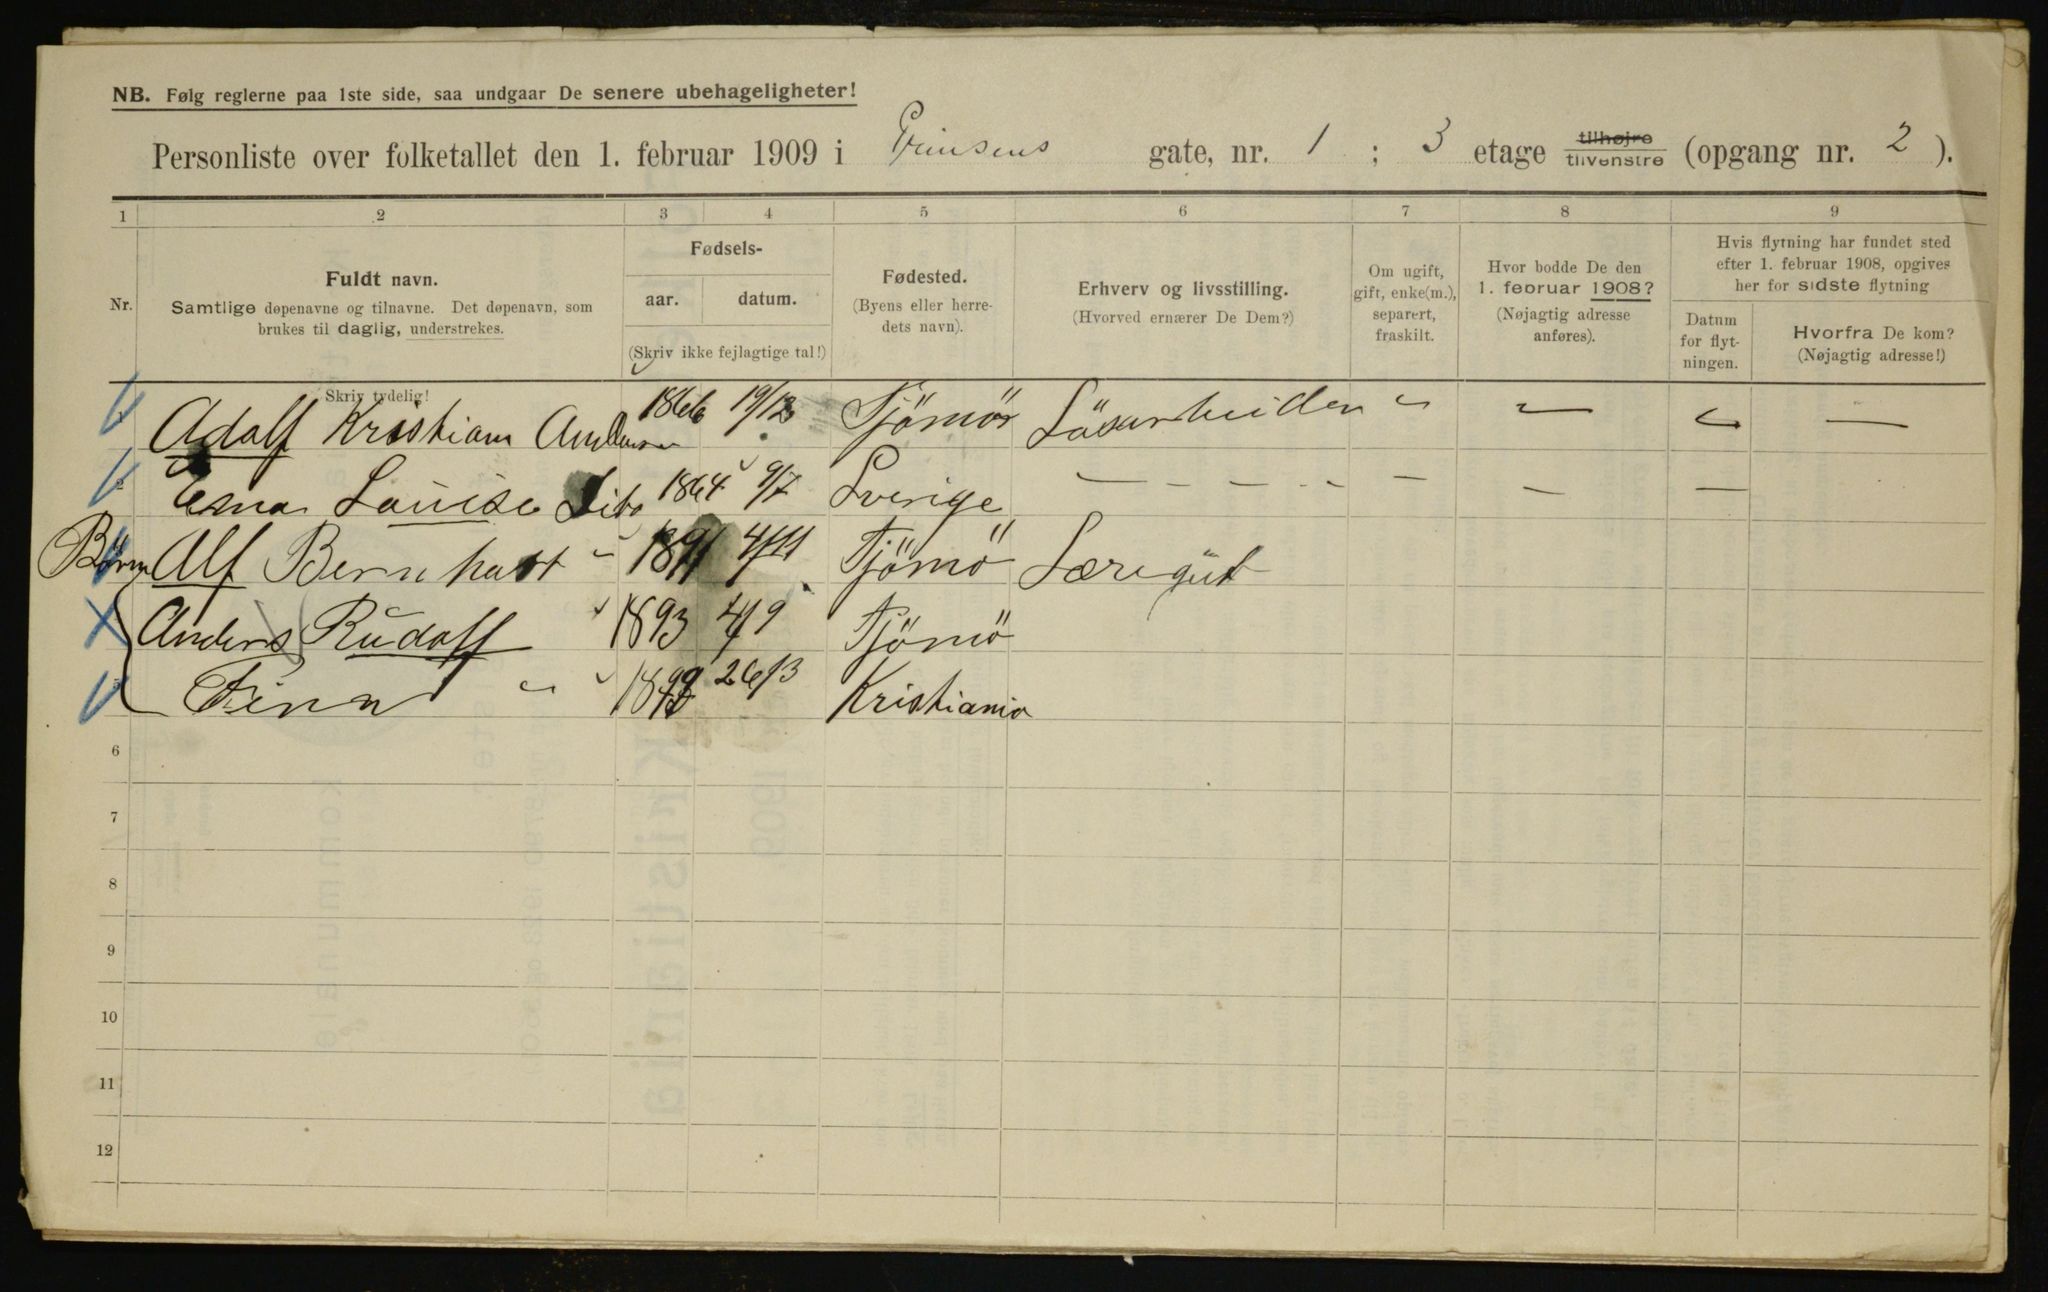 NB. Følg reglerne paa 1ste side, saa undgaar De senere ubehageligheter!
Personliste over folketallet den 1. februar 1909 i Prinsens gate, nr. 1 ; 3 etage tilhøjre tilvenstre (opgang nr. 2 ).
1 2 3 4 5 6 7 8 9
Nr.
Fuldt navn.
Samtlige døpenavne og tilnavne. Det døpenavn, som
brukes til daglig, understrekes.
Skriv tydelig!
Fødsels-
aar. datum.
(Skriv ikke fejlagtige tal!)
Fødested.
(Byens eller herre-
dets navn).
Erhverv og livsstilling.
(Hvorved ernærer De Dem?)
Om ugift,
gift, enke(m.),
separert,
fraskilt.
Hvor bodde De den
1. februar 1908?
(Nøjagtig adresse
anføres).
Hvis flytning har fundet sted
efter 1. februar 1908, opgives
her for sidste flytning
Datum
for flyt-
ningen.
Hvorfra De kom?
(Nøjagtig adresse!)
Adolf Kristian Andersen 1866 19/12 Tjömö Lösarbeider " — — —
2 Louise Dito 1864 9/7 Sverige — — — — — — — —
Börn Alf Bernhart " 1891 4/11 Tjömö Læregut
Anders Rudolf " 1893 4/9 Tjömö
5 Finn " " 26/3 Kristiania
6
7
8
9
10
11
12